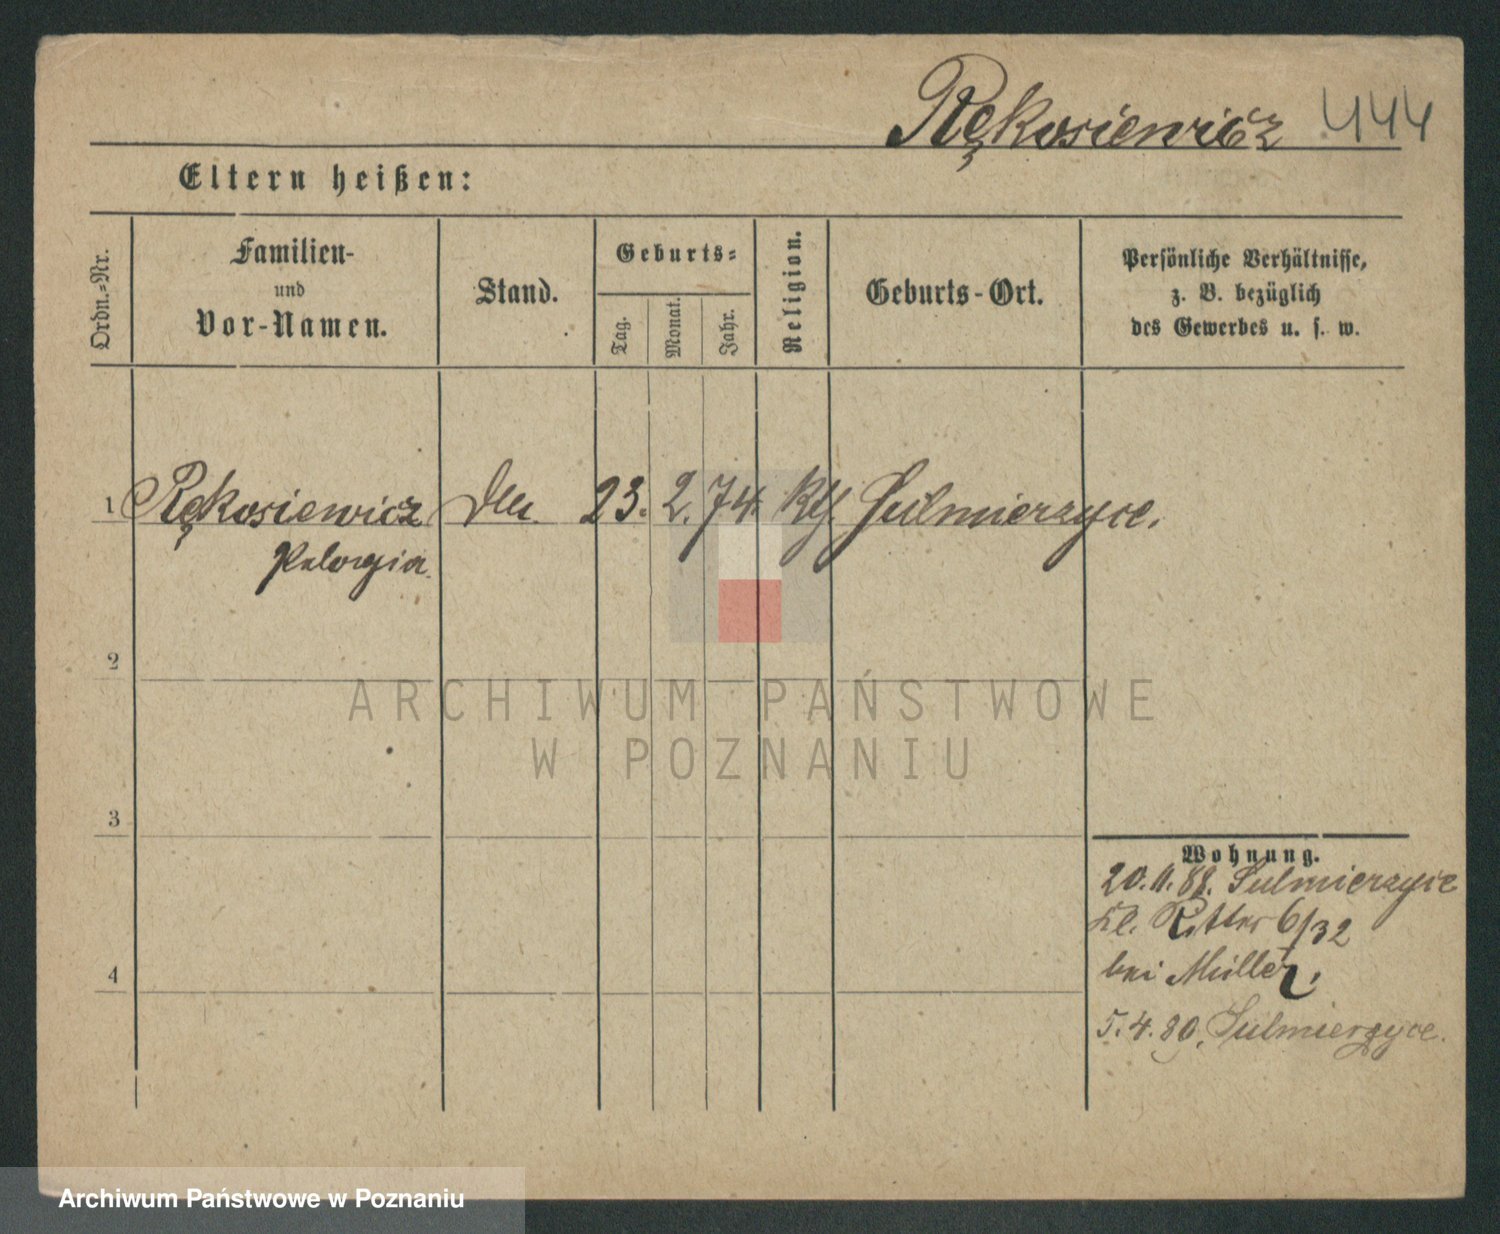 Rękosiewicz 444
Eltern heißen:
Ordn.-Nr.
Familien-
und
Vor-Namen.
Stand.
Geburts-
Tag.
Monat.
Jahr.
Religion.
Geburts-Ort.
Persönliche Verhältnisse,
z. B. bezüglich
des Gewerbes u. s. w.
1 Rękosiewicz 23. 2. 74. kth. Sulmierzyce.
Pelagia.
2
ARCHIWUM PAŃSTWOWE
W POZNANIU
3
Wohnung.
20.11.88. Sulmierzyce
kl. Ritter 6/32
bei Müller.
4
5.4.89. Sulmierzyce.
Archiwum Państwowe w Poznaniu